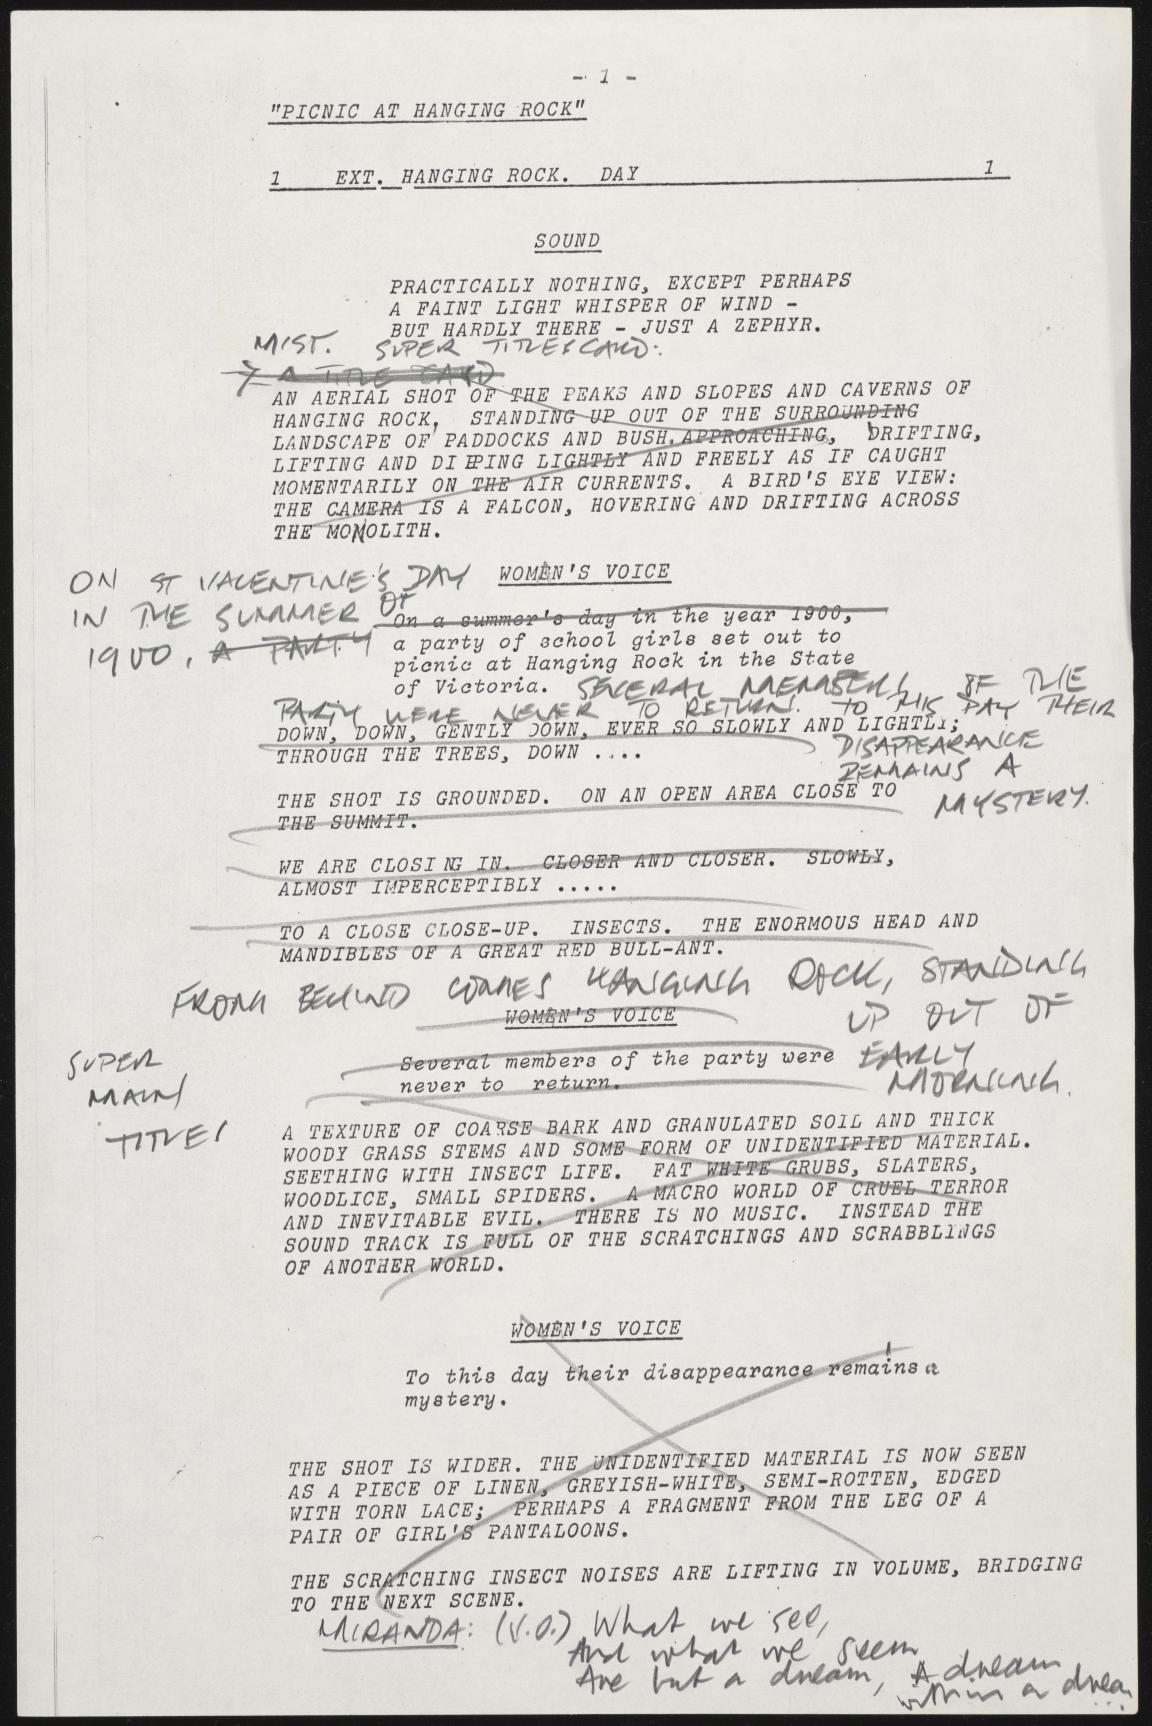 - 1 -
"PICNIC AT HANGING ROCK"
1 EXT. HANGING ROCK. DAY 1
SOUND
PRACTICALLY NOTHING, EXCEPT PERHAPS
A FAINT LIGHT WHISPER OF WIND -
BUT HARDLY THERE - JUST A ZEPHYR.
MIST. SUPER TITLE CARD:
A TITLE CARD
AN AERIAL SHOT OF THE PEAKS AND SLOPES AND CAVERNS OF
HANGING ROCK, STANDING UP OUT OF THE SURROUNDING
LANDSCAPE OF PADDOCKS AND BUSH. APPROACHING, DRIFTING,
LIFTING AND DIPPING LIGHTLY AND FREELY AS IF CAUGHT
MOMENTARILY ON THE AIR CURRENTS. A BIRD'S EYE VIEW:
THE CAMERA IS A FALCON, HOVERING AND DRIFTING ACROSS
THE MONOLITH.
ON ST VALENTINE'S DAY
IN THE SUMMER OF
1900, A PARTY
WOMEN'S VOICE
On a summer's day in the year 1900,
a party of school girls set out to
picnic at Hanging Rock in the State
of Victoria. SEVERAL MEMBERS OF THE
PARTY WERE NEVER TO RETURN. TO THIS DAY THEIR
DISAPPEARANCE
REMAINS A
MYSTERY.
DOWN, DOWN, GENTLY DOWN, EVER SO SLOWLY AND LIGHTLY;
THROUGH THE TREES, DOWN ....
THE SHOT IS GROUNDED. ON AN OPEN AREA CLOSE TO
THE SUMMIT.
WE ARE CLOSING IN. CLOSER AND CLOSER. SLOWLY,
ALMOST IMPERCEPTIBLY .....
TO A CLOSE CLOSE-UP. INSECTS. THE ENORMOUS HEAD AND
MANDIBLES OF A GREAT RED BULL-ANT.
FROM BEHIND COMES HANGING ROCK, STANDING
UP OUT OF
EARLY
MORNING.
WOMEN'S VOICE
Several members of the party were
never to return.
SUPER
MAIN
TITLES
A TEXTURE OF COARSE BARK AND GRANULATED SOIL AND THICK
WOODY GRASS STEMS AND SOME FORM OF UNIDENTIFIED MATERIAL.
SEETHING WITH INSECT LIFE. FAT WHITE GRUBS, SLATERS,
WOODLICE, SMALL SPIDERS. A MACRO WORLD OF CRUEL TERROR
AND INEVITABLE EVIL. THERE IS NO MUSIC. INSTEAD THE
SOUND TRACK IS FULL OF THE SCRATCHINGS AND SCRABBLINGS
OF ANOTHER WORLD.
WOMEN'S VOICE
To this day their disappearance remains a
mystery.
THE SHOT IS WIDER. THE UNIDENTIFIED MATERIAL IS NOW SEEN
AS A PIECE OF LINEN, GREYISH-WHITE, SEMI-ROTTEN, EDGED
WITH TORN LACE; PERHAPS A FRAGMENT FROM THE LEG OF A
PAIR OF GIRL'S PANTALOONS.
THE SCRATCHING INSECT NOISES ARE LIFTING IN VOLUME, BRIDGING
TO THE NEXT SCENE.
MIRANDA: (V.O.) What we see,
And what we seem
Are but a dream, A dream
within a dream...